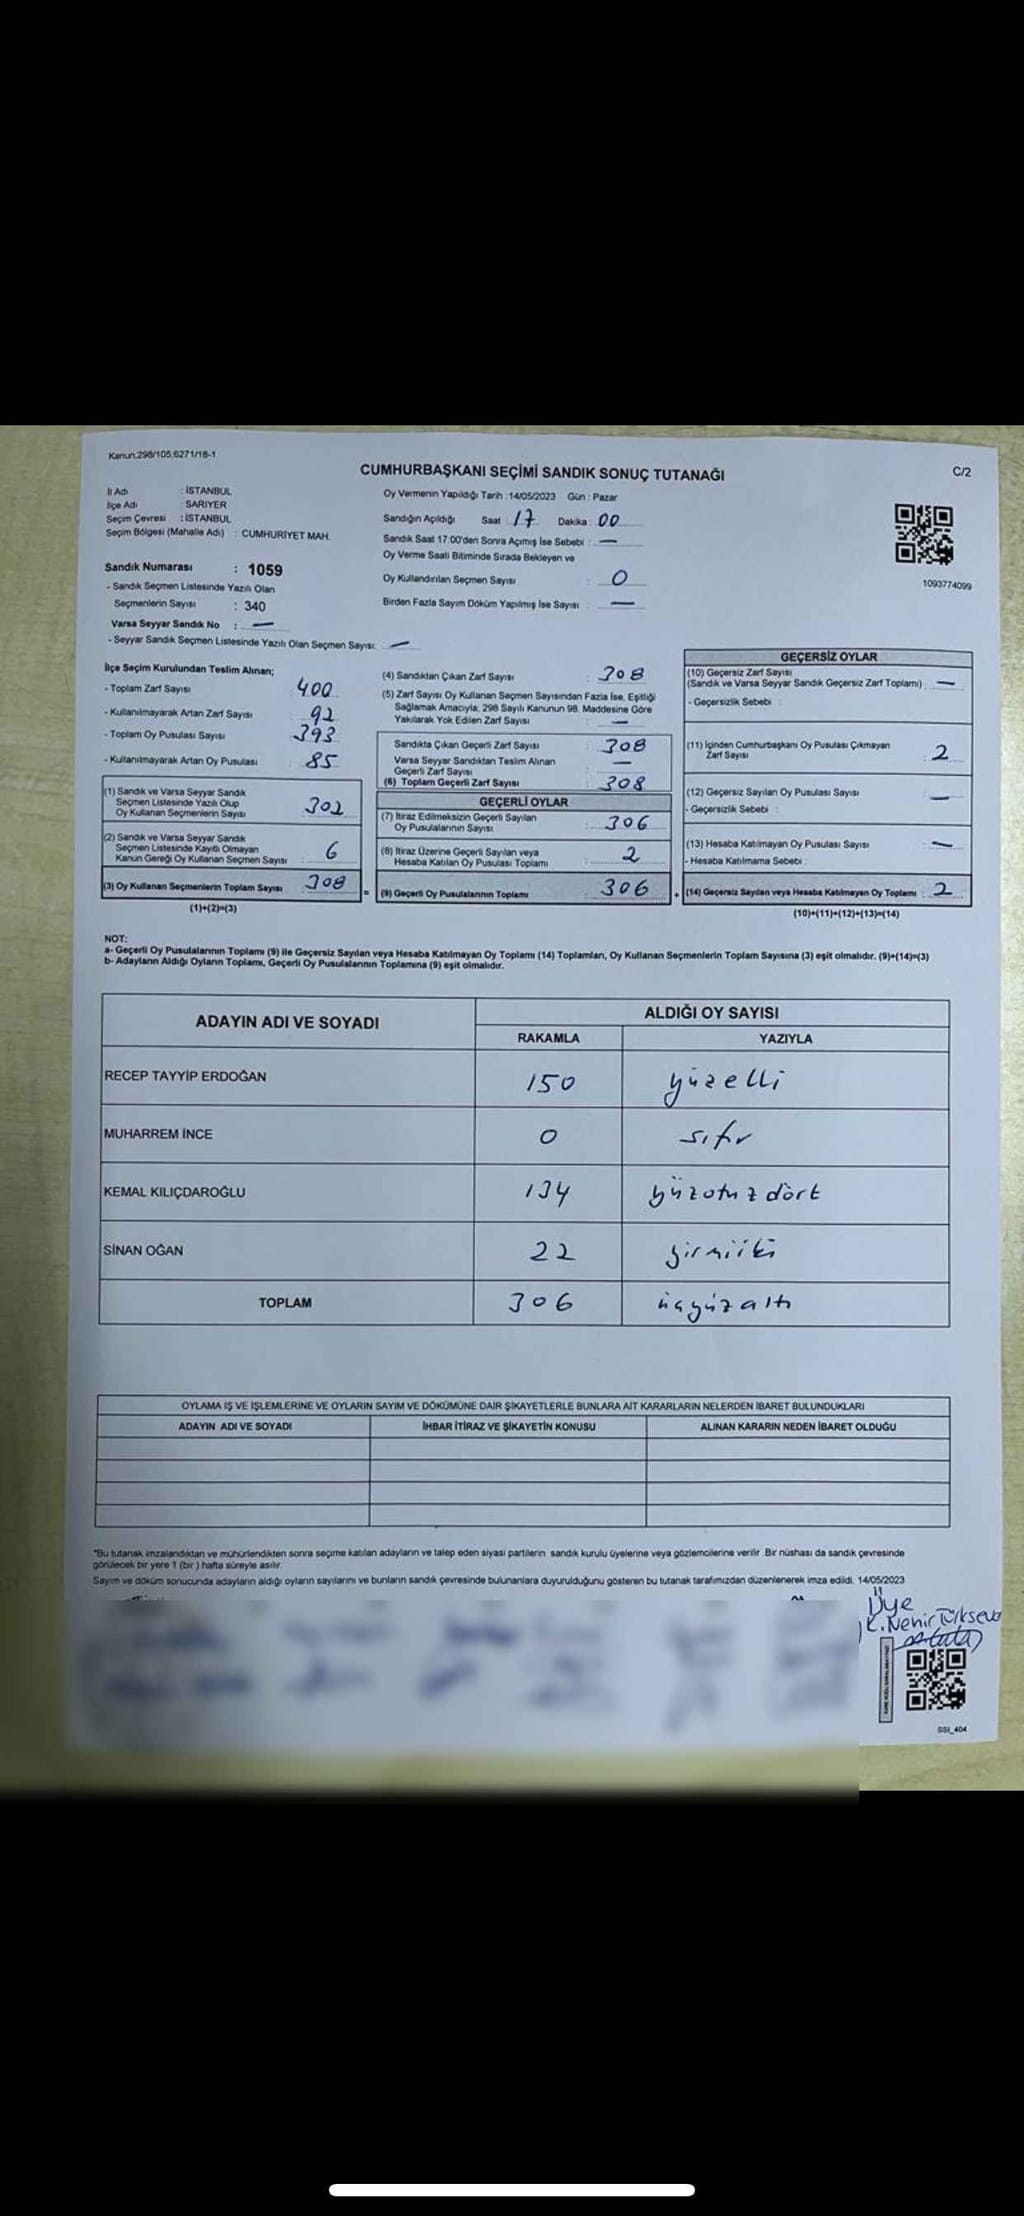 Kanun:298/105,6271/18-1
CUMHURBAŞKANI SEÇİMİ SANDIK SONUÇ TUTANAĞI
C/2
İl Adı : İSTANBUL
İlçe Adı : SARIYER
Seçim Çevresi : İSTANBUL
Seçim Bölgesi (Mahalle Adı) : CUMHURİYET MAH.
Sandık Numarası : 1059
- Sandık Seçmen Listesinde Yazılı Olan
Seçmenlerin Sayısı : 340
Varsa Seyyar Sandık No : —
- Seyyar Sandık Seçmen Listesinde Yazılı Olan Seçmen Sayısı: —
Oy Vermenin Yapıldığı Tarih : 14/05/2023 Gün : Pazar
Sandığın Açıldığı Saat : 17 Dakika : 00
Sandık Saat 17:00'den Sonra Açımış İse Sebebi : —
Oy Verme Saati Bitiminde Sırada Bekleyen ve
Oy Kullandırılan Seçmen Sayısı : 0
Birden Fazla Sayım Döküm Yapılmış İse Sayısı : —
1093774099
İlçe Seçim Kurulundan Teslim Alınan;
- Toplam Zarf Sayısı 400
- Kullanılmayarak Artan Zarf Sayısı 92
- Toplam Oy Pusulası Sayısı 393
- Kullanılmayarak Artan Oy Pusulası 85
(1) Sandık ve Varsa Seyyar Sandık
Seçmen Listesinde Yazılı Olup
Oy Kullanan Seçmenlerin Sayısı 302
(2) Sandık ve Varsa Seyyar Sandık
Seçmen Listesinde Kayıtlı Olmayan
Kanun Gereği Oy Kullanan Seçmen Sayısı : 6
(3) Oy Kullanan Seçmenlerin Toplam Sayısı 308
(1)+(2)=(3)
(4) Sandıktan Çıkan Zarf Sayısı : 308
(5) Zarf Sayısı Oy Kullanan Seçmen Sayısından Fazla İse, Eşitliği
Sağlamak Amacıyla, 298 Sayılı Kanunun 98. Maddesine Göre
Yakılarak Yok Edilen Zarf Sayısı : —
Sandıkta Çıkan Geçerli Zarf Sayısı : 308
Varsa Seyyar Sandıktan Teslim Alınan
Geçerli Zarf Sayısı : —
(6) Toplam Geçerli Zarf Sayısı : 308
GEÇERLİ OYLAR
(7) İtiraz Edilmeksizin Geçerli Sayılan
Oy Pusulalarının Sayısı : 306
(8) İtiraz Üzerine Geçerli Sayılan veya
Hesaba Katılan Oy Pusulası Toplamı : 2
= (9) Geçerli Oy Pusulalarının Toplamı 306
GEÇERSİZ OYLAR
(10) Geçersiz Zarf Sayısı
(Sandık ve Varsa Seyyar Sandık Geçersiz Zarf Toplamı) : —
- Geçersizlik Sebebi :
(11) İçinden Cumhurbaşkanı Oy Pusulası Çıkmayan
Zarf Sayısı : 2
(12) Geçersiz Sayılan Oy Pusulası Sayısı : —
- Geçersizlik Sebebi :
(13) Hesaba Katılmayan Oy Pusulası Sayısı : —
- Hesaba Katılmama Sebebi :
+ (14) Geçersiz Sayılan veya Hesaba Katılmayan Oy Toplamı : 2
(10)+(11)+(12)+(13)=(14)
NOT:
a- Geçerli Oy Pusulalarının Toplamı (9) ile Geçersiz Sayılan veya Hesaba Katılmayan Oy Toplamı (14) Toplamları, Oy Kullanan Seçmenlerin Toplam Sayısına (3) eşit olmalıdır. (9)+(14)=(3)
b- Adayların Aldığı Oyların Toplamı, Geçerli Oy Pusulalarının Toplamına (9) eşit olmalıdır.
ADAYIN ADI VE SOYADI
ALDIĞI OY SAYISI
RAKAMLA YAZIYLA
RECEP TAYYİP ERDOĞAN 150 yüzelli
MUHARREM İNCE 0 sıfır
KEMAL KILIÇDAROĞLU 134 yüzotuzdört
SİNAN OĞAN 22 yirmiiki
TOPLAM 306 üçyüzaltı
OYLAMA İŞ VE İŞLEMLERİNE VE OYLARIN SAYIM VE DÖKÜMÜNE DAİR ŞİKAYETLERLE BUNLARA AİT KARARLARIN NELERDEN İBARET BULUNDUKLARI
ADAYIN ADI VE SOYADI İHBAR İTİRAZ VE ŞİKAYETİN KONUSU ALINAN KARARIN NEDEN İBARET OLDUĞU
"Bu tutanak imzalandıktan ve mühürlendikten sonra seçime katılan adayların ve talep eden siyasi partilerin sandık kurulu üyelerine veya gözlemcilerine verilir. Bir nüshası da sandık çevresinde
görülecek bir yere 1 (bir ) hafta süreyle asılır.
Sayım ve döküm sonucunda adayların aldığı oyların sayılarını ve bunların sandık çevresinde bulunanlara duyurulduğunu gösteren bu tutanak tarafımızdan düzenlenerek imza edildi. 14/05/2023
Üye
K. Nehir
SSI_404